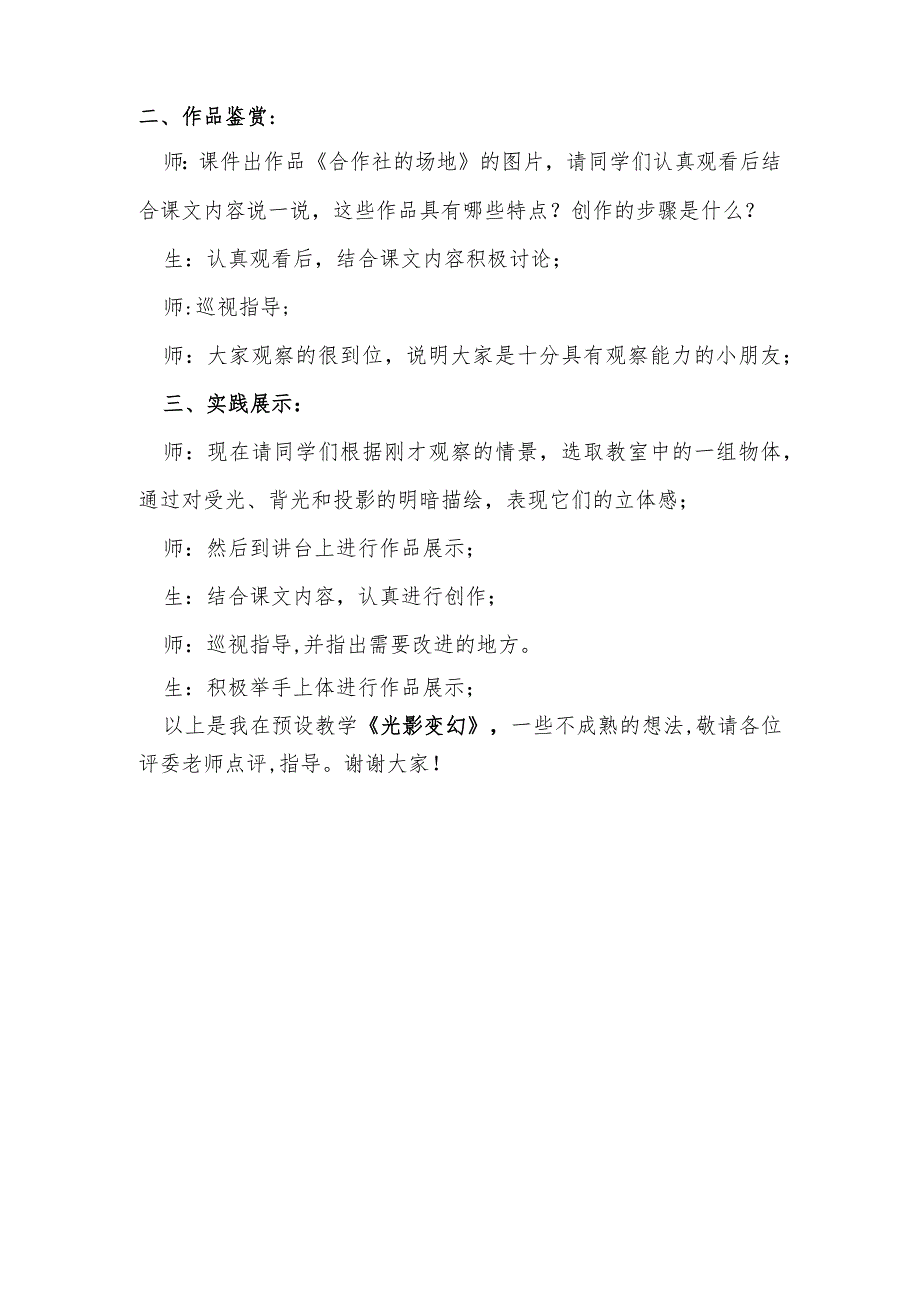 二、作品鉴赏:
师：课件出作品《合作社的场地》的图片，请同学们认真观看后结
合课文内容说一说，这些作品具有哪些特点？创作的步骤是什么？
生：认真观看后，结合课文内容积极讨论；
师:巡视指导;
师：大家观察的很到位，说明大家是十分具有观察能力的小朋友；
三、实践展示：
师：现在请同学们根据刚才观察的情景，选取教室中的一组物体，
通过对受光、背光和投影的明暗描绘，表现它们的立体感；
师：然后到讲台上进行作品展示；
生：结合课文内容，认真进行创作；
师：巡视指导,并指出需要改进的地方。
生：积极举手上体进行作品展示；
以上是我在预设教学《光影变幻》，一些不成熟的想法,敬请各位
评委老师点评,指导。谢谢大家！